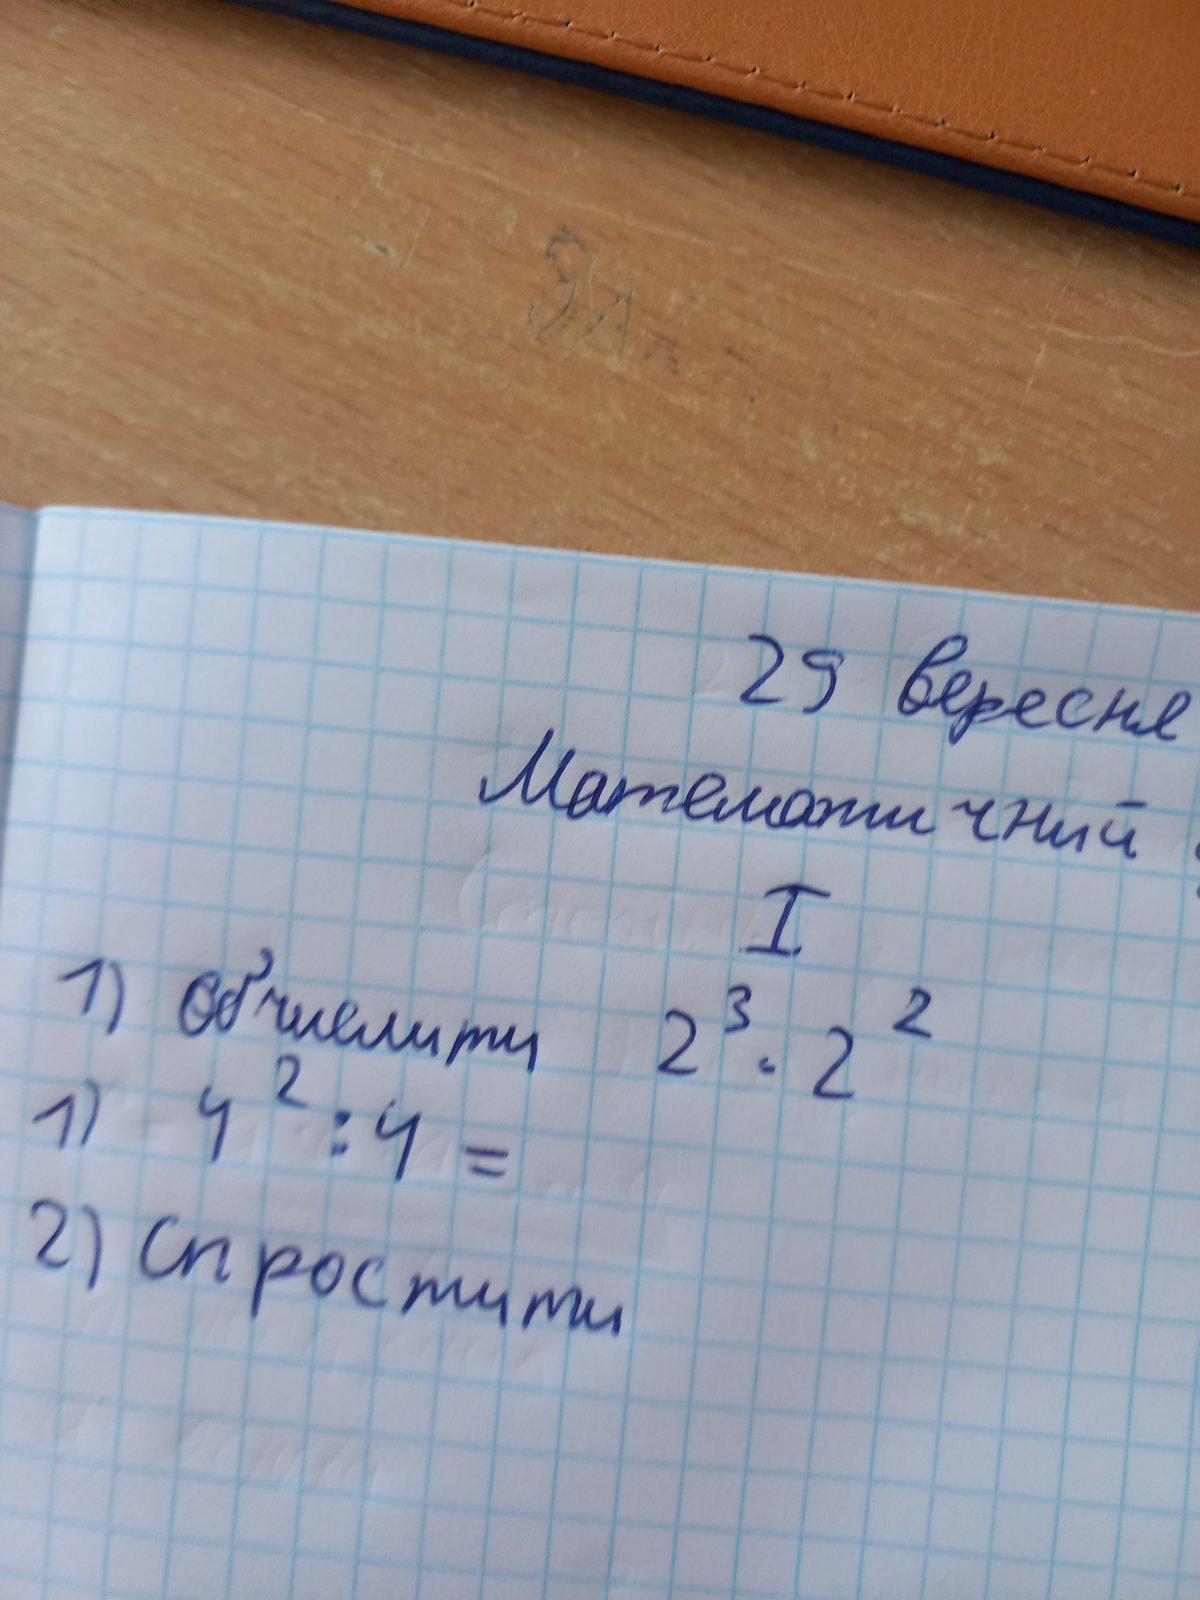 29 вересня
Математичний
I
1) Обчислити 2³ · 2²
1) 4² : 4 =
2) Спростити